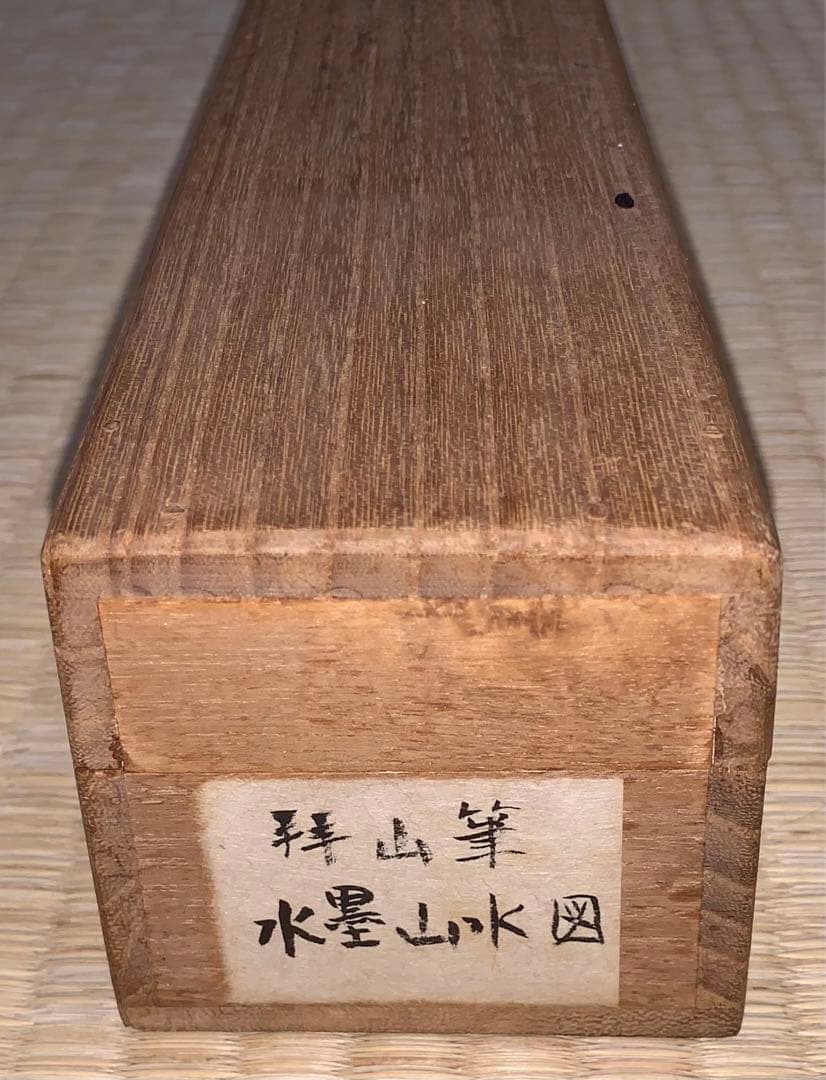 拜山筆
水墨山水図